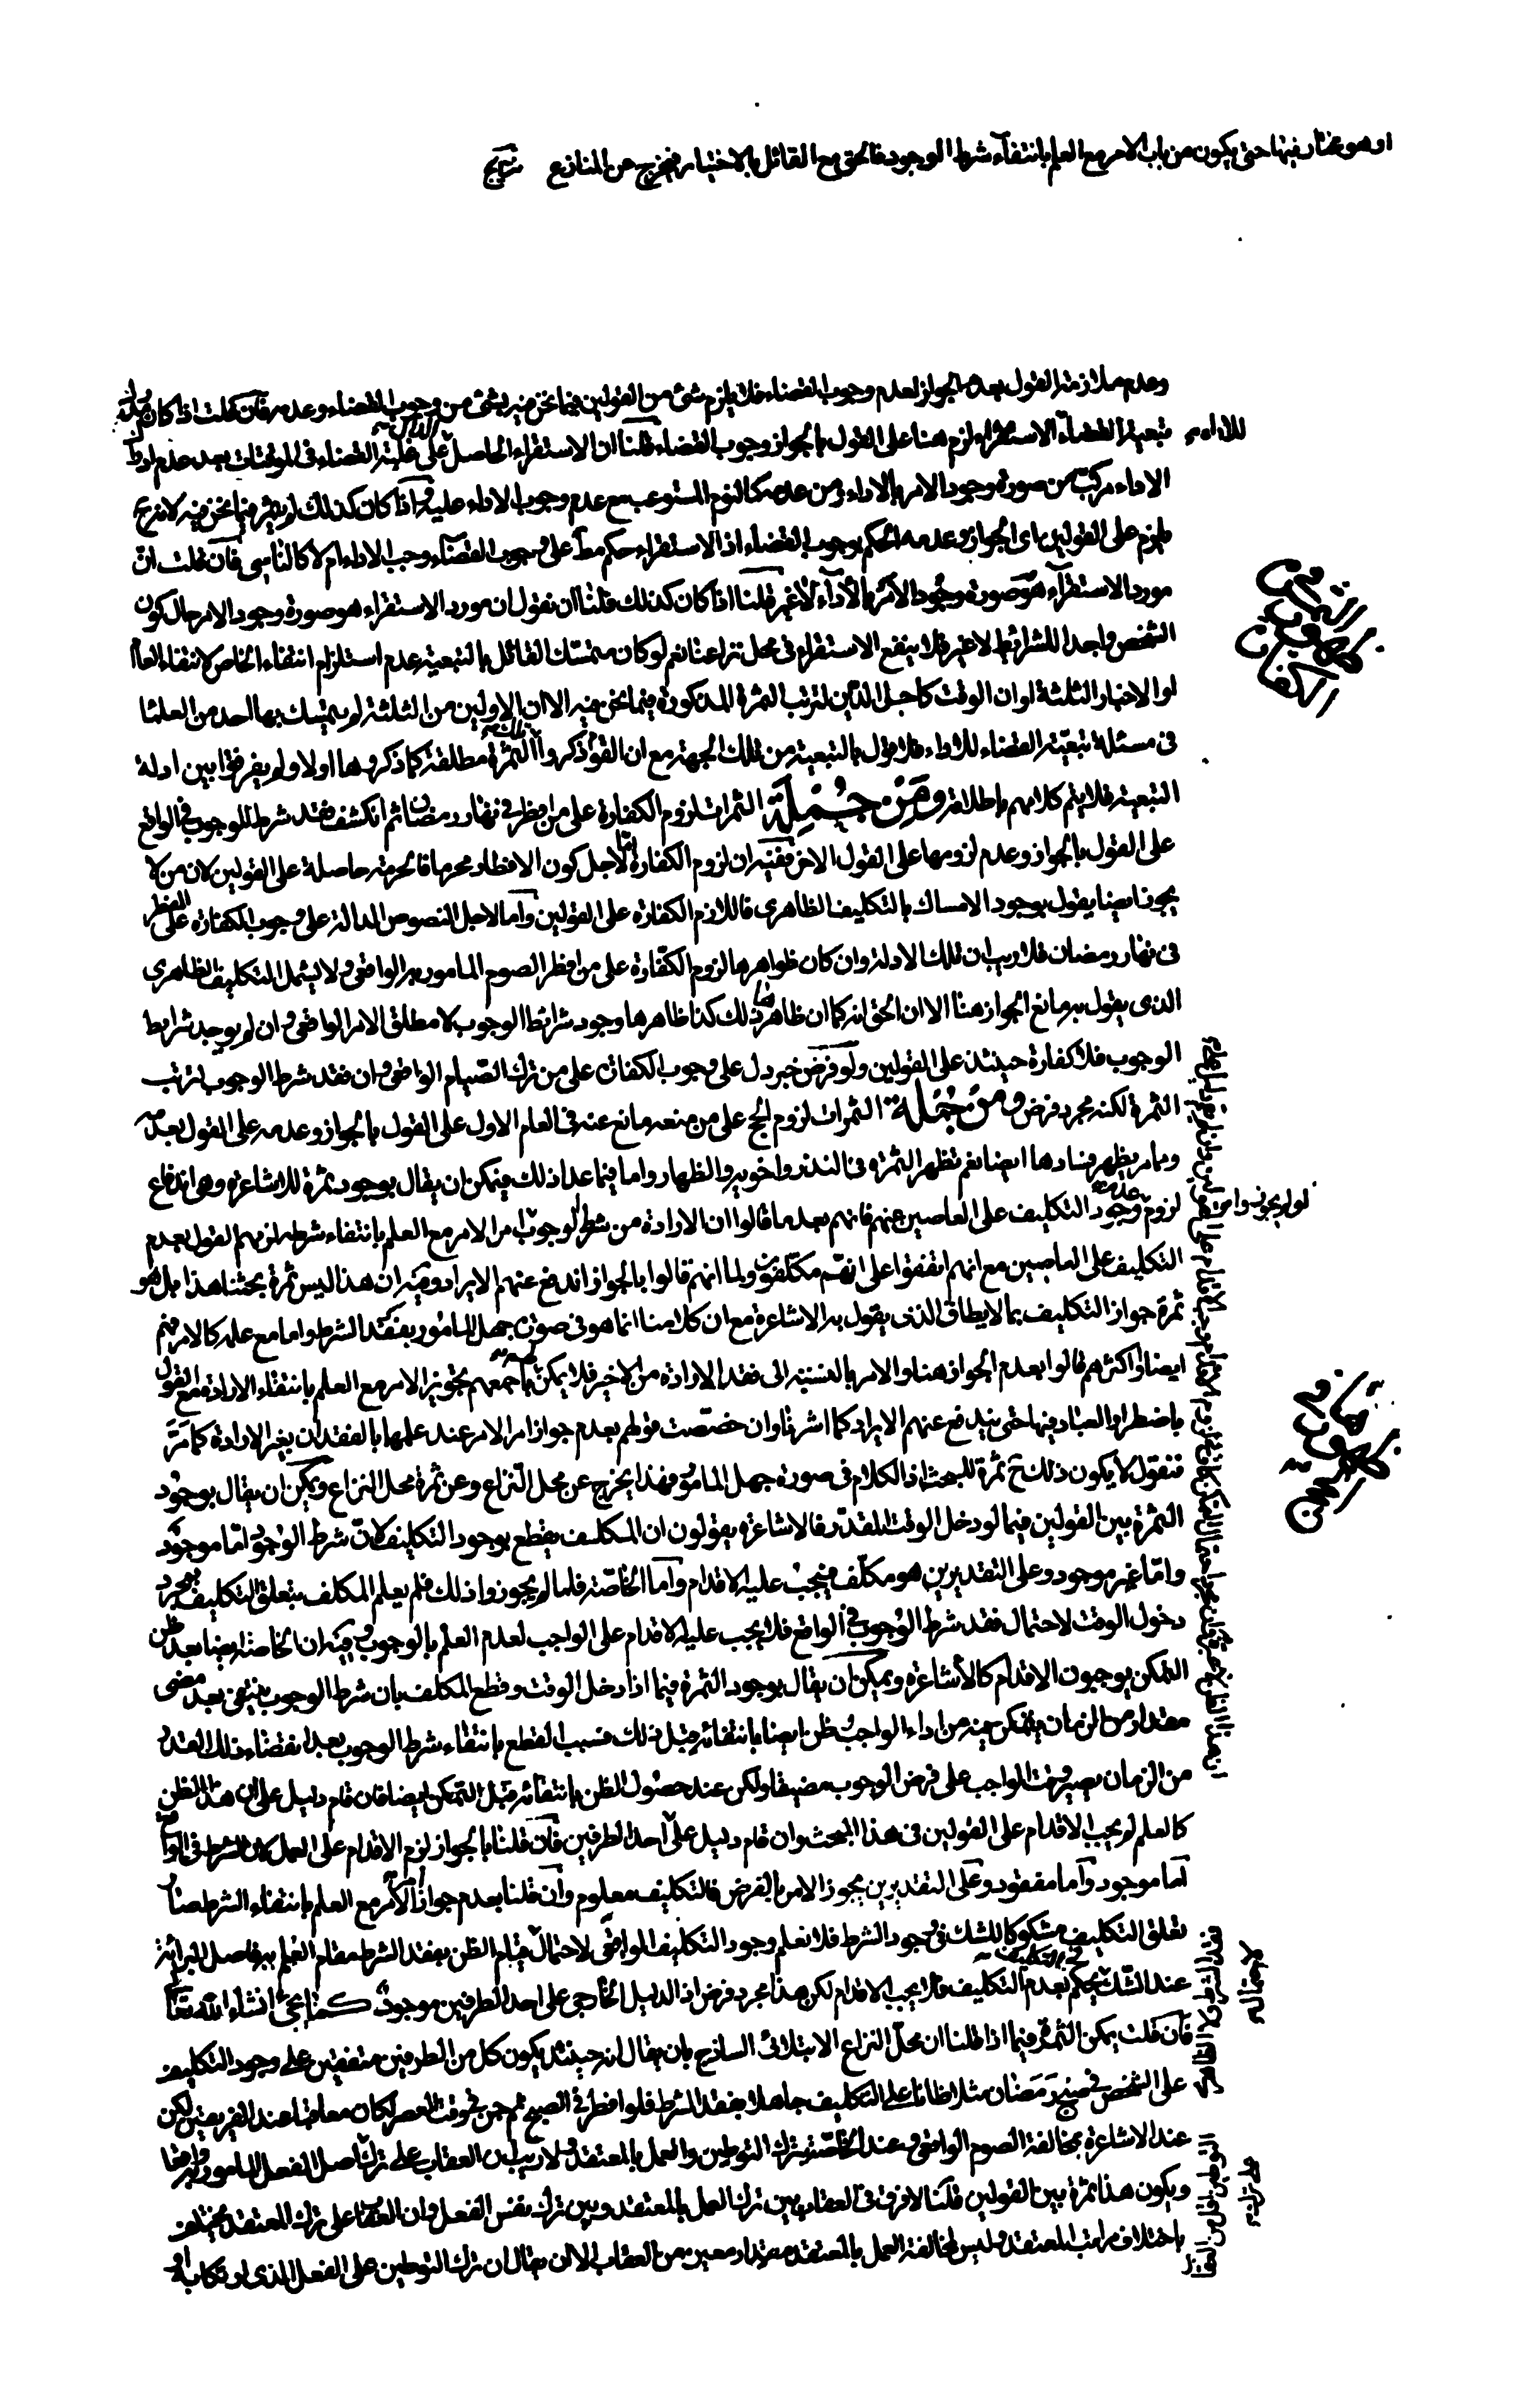 او هو مختار فيها حتى يكون من باب الامر مع العلم بانتفاء شرط الوجود فالحق مع القائل بالاختيار فيخرج عن المنازع
وعدم ملازمة القول بعدم الجواز لعدم وجوب القضاء فلا يلزم شئ من القولين فيما نحن فيه بشئ من وجوب القضاء وعدمه فان قلت اذا كان
تبعية القضاء الاستقراء لزم هنا على القول بالجواز وجوب القضاء قلنا ان الاستقراء الحاصل على غلبة القضاء فى الموقتات بعد عدم
الاداء مركب من صورة وجود الامر بالاداء ومن عدمه كالنوم المستوعب مع عدم وجوب الاداء عليه فاذا كان كذلك لم يثمر فيما نحن فيه لانه
يلزم على القولين اى الجواز وعدمه الحكم بوجوب القضاء اذ الاستقراء حكم على وجوب القضاء وجب الاداء ام لا كالناسى فان قلت ان
مورد الاستقراء هو صورة وجود الامر بالاداء لا غير قلنا اذا كان كذلك فلنا ان نقول ان مورد الاستقراء هو صورة وجود الامر حال كون
الشخص واجدا للشرائط لا غير فلا ينفع الاستقراء فى محل نزاعنا نعم لو كان متمسك القائل بالتبعية عدم استلزام انتفاء الخاص لانتفاء العام
او الاخبار الثلثة او ان الوقت كاجل الدين لترتب الثمرة المذكورة فيما نحن فيه الا ان الاولين من الثلثة لم يتمسك بها احد من العلماء
فى مسئلة تبعية القضاء للاداء فلا قول بالتبعية من تلك الجهة مع ان القوم ذكروا الثمرة مطلقة كما ذكروها اولا ولم يفرقوا بين ادلة
التبعية فلا يتم كلامهم باطلاقه ومن جملة الثمرات لزوم الكفارة على من افطر فى نهار رمضان ثم انكشف فقد شرط الوجوب فى الواقع
على القول بالجواز وعدم لزومها على القول الاخر ففيه ان لزوم الكفارة اما لاجل كون الافطار محرما فالحرمة حاصلة على القولين لان من لا
يجوز ايضا يقول بوجود الامساك بالتكليف الظاهرى فاللازم الكفارة على القولين واما لاجل النصوص الدالة على وجوب الكفارة على المفطر
فى نهار رمضان فلا ريب ان تلك الادلة وان كان ظواهرها لزوم الكفارة على من افطر الصوم المامور به الواقعى ولا يشمل التكليف الظاهرى
الذى يقول به مانع الجواز هنا الا ان الحق انه كما ان ظاهرها ذلك كذا ظاهرها وجود شرائط الوجوب لا مطلق الامر الواقعى وان لم يوجد شرايط
الوجوب فلا كفارة حينئذ على القولين ولو فرض خبر دل على وجوب الكفارة على من ترك الصيام الواقعى وان فقد شرط الوجوب لترتب
الثمرة لكنه مجرد فرض ومن جملة الثمرات لزوم الحج على من منعه مانع عنه فى العام الاول على القول بالجواز وعدمه على القول بعدمه
ومما مر يظهر فسادها ايضا نعم تظهر الثمرة فى النذر واخويه والظهار واما فيما عدا ذلك فيمكن ان يقال بوجود ثمرة للاشاعرة وهى اندفاع
لزوم عدم وجود التكليف على العاصين عنهم فانهم بعد ما قالوا ان الارادة من شرط الوجوب لو لم يجوزوا الامر مع العلم بانتفاء شرطه لزمهم القول بعدم
التكليف على العاصين مع انهم اتفقوا على انهم مكلفون ولما انهم قالوا بالجواز اندفع عنهم الايراد وفيه ان هذا ليس ثمرة بحثنا هذا بل هو
ثمرة جواز التكليف بما لا يطاق الذى يقول به الاشاعرة مع ان كلامنا انما هو فى صورة جهل المامور بفقد الشرط واما مع علمه كالامر فهم
ايضا اكثرهم قالوا بعدم الجواز هنا والامر بالنسبة الى فقد الارادة من الاخير فلا يمكن باجمعهم تجويز الامر مع العلم بانتفاء الارادة مع القول
باضطرار العباد فيها حتى يندفع عنهم الايراد كما اشرنا وان خصصت قولهم بعدم جواز امر الامر عند علمها بالفقدان بغير الارادة كما مر
فنقول لا يكون ذلك ح ثمرة للبحث اذ الكلام فى صورة جهل المامور فهذا يخرج عن محل النزاع وعن ثمرة محل النزاع ويمكن ان يقال بوجود
الثمرة بين القولين فيما لو دخل الوقت المقدر فالاشاعرة يقولون ان المكلف يقطع بوجود التكليف لان شرط الوجوب اما موجود
واما غير موجود وعلى التقديرين هو مكلف فيجب عليه الاقدام واما الخاصة فلما لم يجوزوا ذلك فلم يعلم المكلف بتعلق التكليف بمجرد
دخول الوقت لاحتمال فقد شرط الوجوب فى الواقع فلا يجب عليه الاقدام على الواجب لعدم العلم بالوجوب وفيه ان الخاصة ايضا بعد ظن
التمكن يوجبون الاقدام كالاشاعرة ويمكن ان يقال بوجود الثمرة فيما اذا دخل الوقت وقطع المكلف بان شرط الوجوب ينتفى بعد مضى
مقدار من الزمان يتمكن فيه من اداء الواجب وظن ايضا بانتفائه قبل ذلك فسبب القطع بانتفاء شرط الوجوب بعد انقضاء ذلك القدر
من الزمان يصير وقت الواجب على فرض الوجوب مضيقا ولكن عند حصول الظن بانتفائه قبل التمكن ايضا فان قام دليل على ان هذا الظن
كالعلم لم يجب الاقدام على القولين فى هذا البحث وان قام دليل على احد الطرفين فان قلنا بالجواز لزم الاقدام على العمل لان الشرط فى الواقع
اما موجود واما مفقود وعلى التقديرين يجوز الامر بالفرض فالتكليف معلوم وان قلنا بعدم جواز الامر مع العلم بانتفاء الشرط صار
تعلق التكليف مشكوكا للشك فى وجود الشرط فلا نعلم وجود التكليف الواقعى لاحتمال قيام الظن بفقد الشرط مقام العلم به فاصل البرائة
عند الشك يحكم بعدم التكليف فلا يجب الاقدام لكن هذا مجرد فرض اذ الدليل الخارجى على احد الطرفين موجود كما يجئ انشاء الله تعالى
فان قلت يمكن الثمرة فيما اذا قلنا ان محل النزاع الابتلائى الساذج بان يقال انه حينئذ يكون كل من الطرفين متفقين على وجود التكليف
على الشخص فى رمضان مثلا ظانا على التكليف جاهلا بفقد الشرط فلو افطر فى الصبح ثم جن فى وقت العصر لكان معاقبا عند الفريقين لكن
عند الاشاعرة بمخالفة الصوم الواقعى وعند الخاصة بترك التوطين والعمل بالمعتقد ولا ريب ان العقاب على ترك اصل الفعل المامور به
ويكون هذا ثمرة بين القولين قلنا لا فرق فى العقاب بين ترك العمل بالمعتقد وبين ترك نفس الفعل وان العقاب على ترك المعتقد يختلف
باختلاف مراتب المعتقد وليس لمخالفة العمل بالمعتقد مقدار معين من العقاب الا ان يقال ان ترك التوطين على الفعل الذى